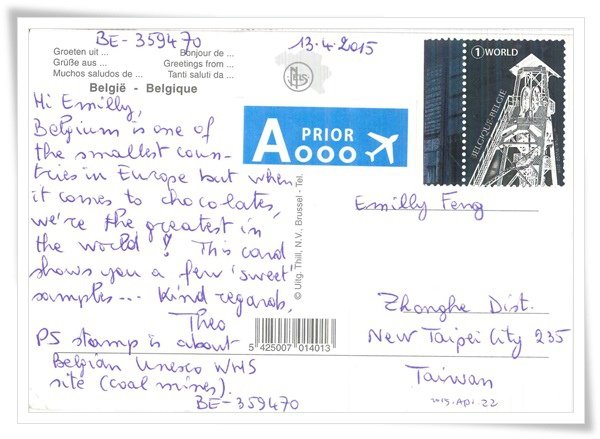 BE-359470
13.4.2015
Groeten uit ... Bonjour de ...
Grüße aus ... Greetings from ...
Muchos saludos de ... Tanti saluti da ...
België - Belgique
Hi Emilly,
Belgium is one of
the smallest coun-
tries in Europe but when
it comes to chocolates,
we're the greatest in
the world! This card
shows you a few 'sweet'
samples... Kind regards,
Theo
PS stamp is about
Belgian Unesco WHS
site (coal mines).
BE-359470
A PRIOR
© Uitg. Thill, N.V., Brussel - Tel.
5 425007 014013
1 WORLD
BELGIQUE-BELGIË
Emilly Feng
Zhonghe Dist.
New Taipei City 235
Taiwan
2015.Apr.22